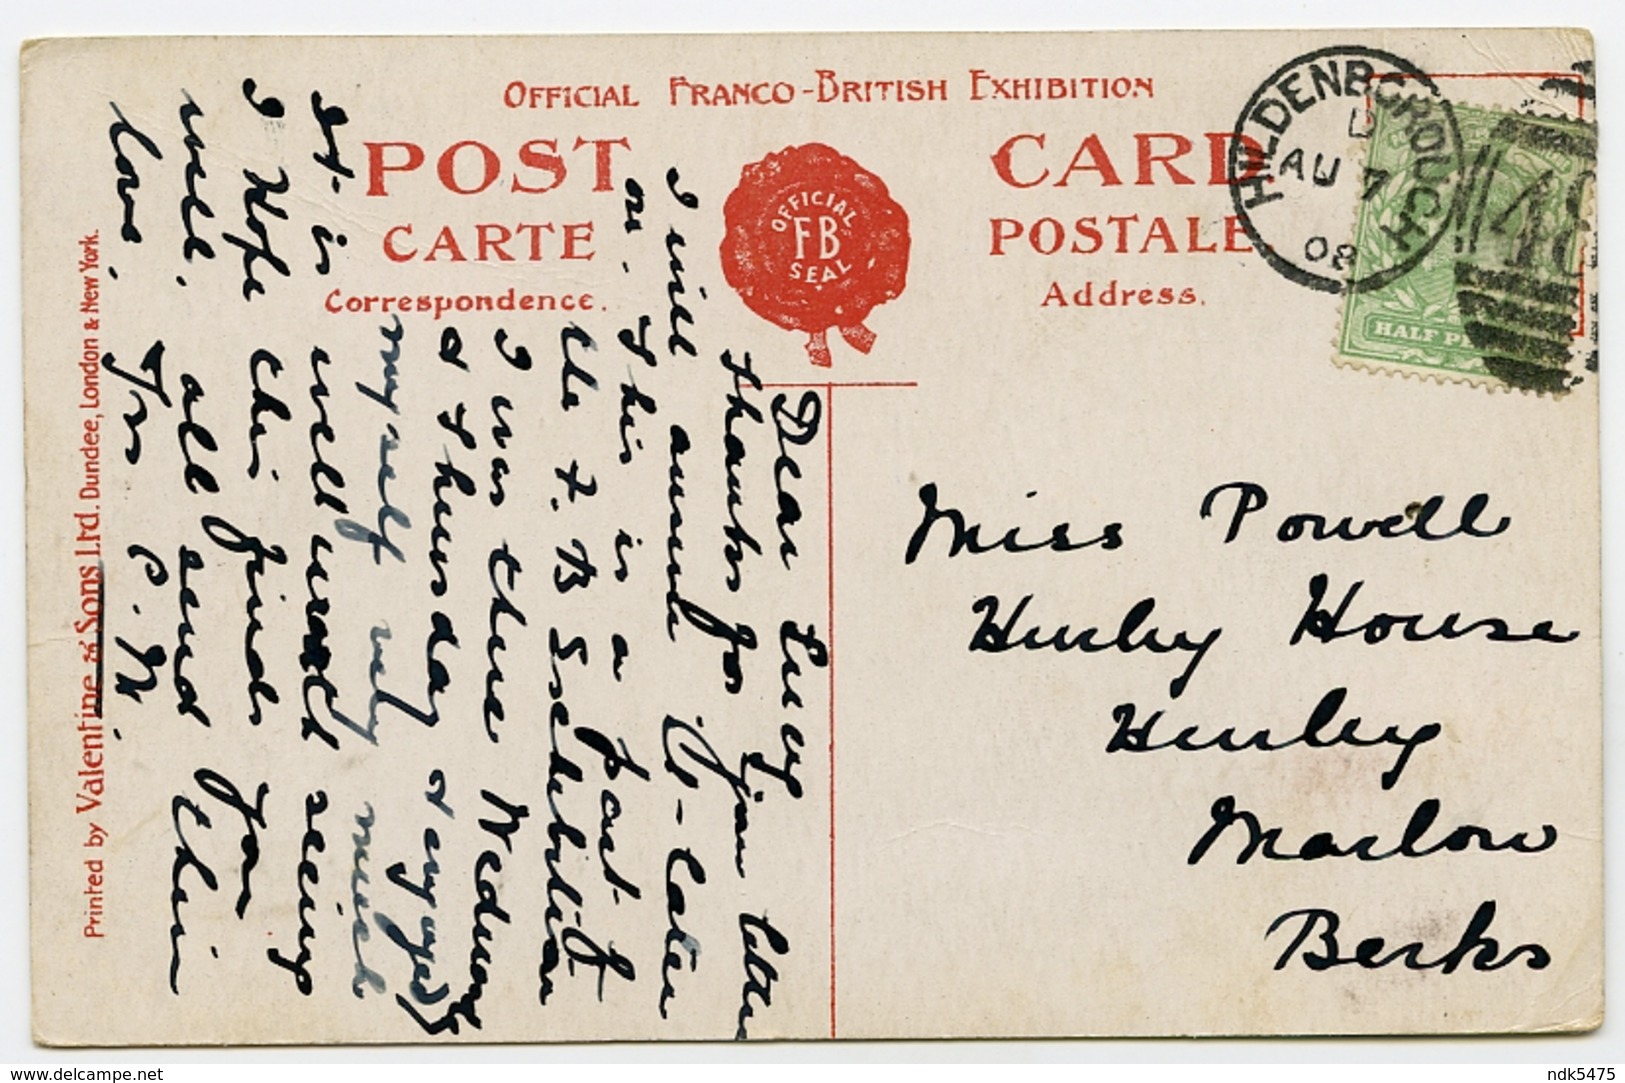 OFFICIAL FRANCO-BRITISH EXHIBITION
POST CARD
CARTE POSTALE
Correspondence.
Address.
OFFICIAL
FB
SEAL
HILDENBOROUGH
D
AU 7
08
48
HALF PE
Dear Lucy
Thanks for your letter
I will answer it later
on. This is a part of
the F. B Exhibition
I was there Wednesday
& Thursday & enjoyed
myself very much
It is well worth seeing
I Hope this finds you
well. all send their
love. Yrs C. M.
Miss Powell
Hurley House
Hurley
Marlow
Berks
Printed by Valentine & Sons Ltd. Dundee, London & New York.
delcampe.net
ndk5475